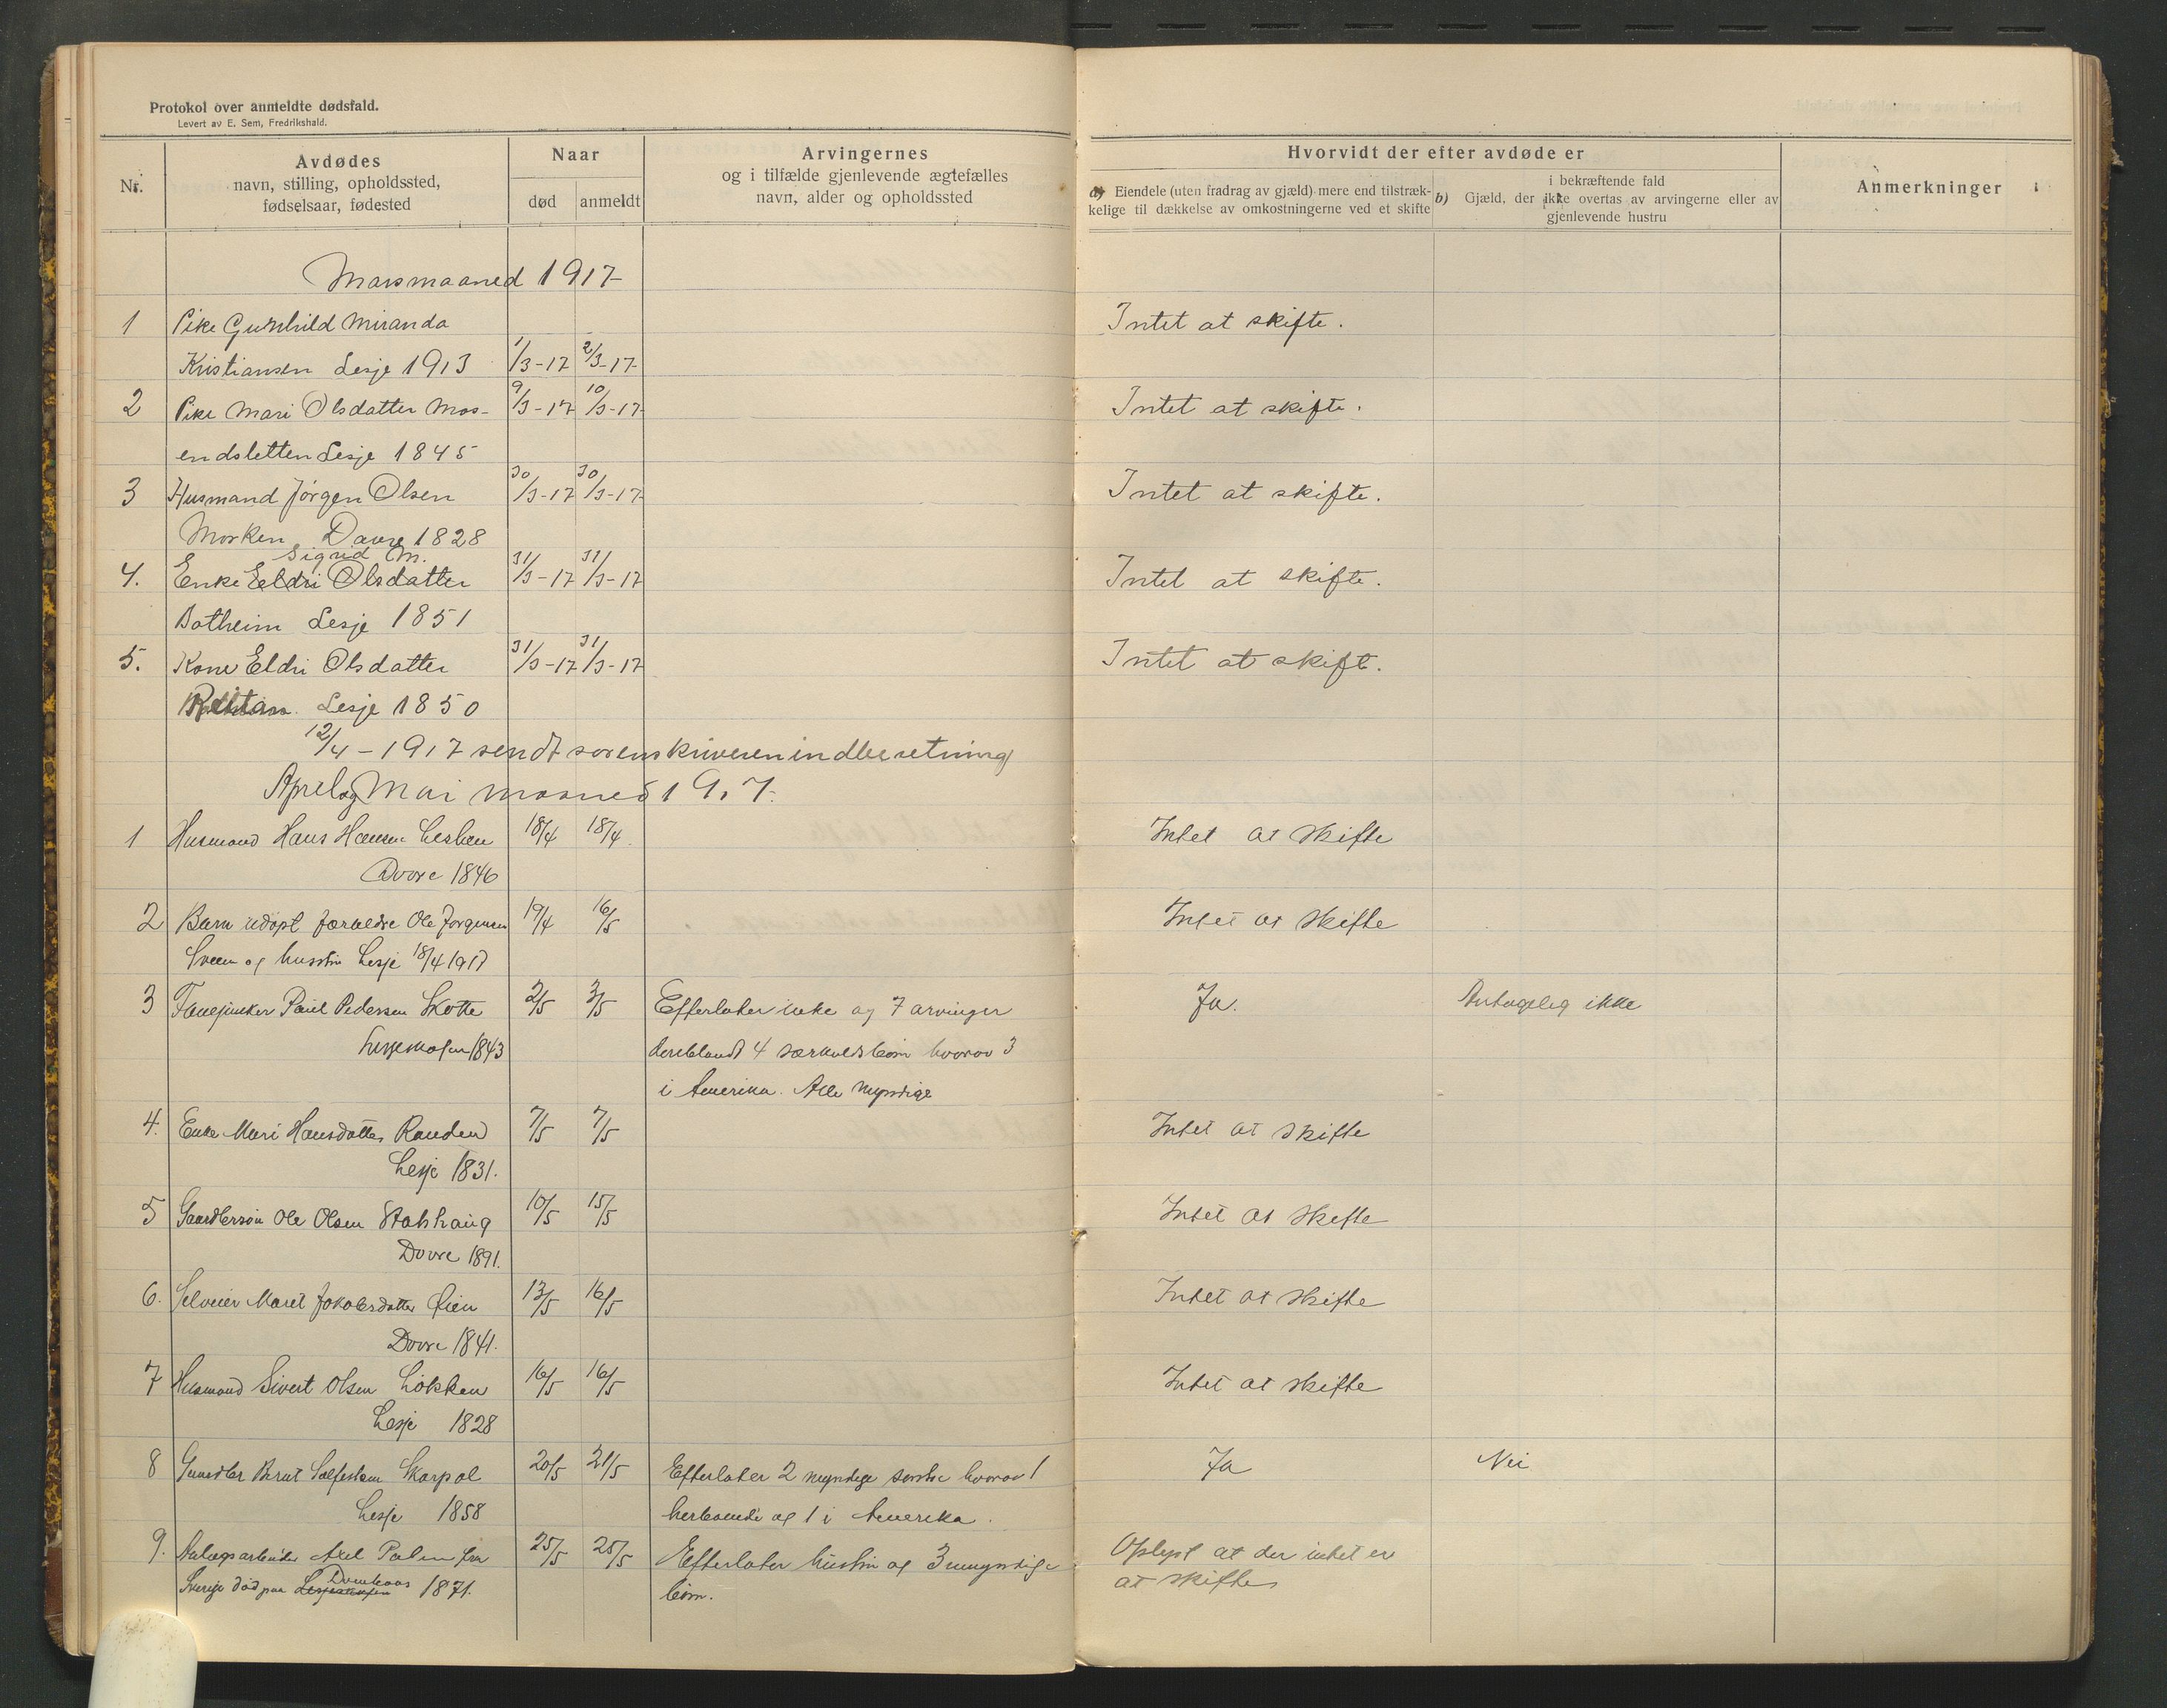 Protokol over anmeldte dødsfald.
Levert av E. Sem, Fredrikshald.
Nr.
Avdødes
navn, stilling, opholdssted,
fødselsaar, fødested
Naar
død
anmeldt
Arvingernes
og i tilfælde gjenlevende ægtefælles
navn, alder og opholdssted
Hvorvidt der efter avdøde er
a) Eiendele (uten fradrag av gjæld) mere end tilstræk-
kelige til dækkelse av omkostningerne ved et skifte
b)
i bekræftende fald
Gjæld, der ikke overtas av arvingerne eller av
gjenlevende hustru
Anmerkninger
Marsmaaned 1917
1 Pike Gunhild Miranda Intet at skifte.
Kristiansen Lesje 1913 1/3-17 2/3-17
2 Pike Mari Olsdatter Mos- 9/3-17 10/3-17 Intet at skifte.
endsletten Lesje 1845
3 Husmand Jørgen Olsen 30/3-17 30/3-17 Intet at skifte.
Morken Dovre 1828
Sigrid M.
4. Enke Eldri Olsdatter 31/3-17 31/3-17 Intet at skifte.
Botheim Lesje 1851
5. Kone Eldri Olsdatter 31/3-17 31/3-17 Intet at skift.
Lesje 1850
12/4-1917 sendt sorenskriveren indberetning
April og Mai maaned 1917.
1 Husmand Hans Hansen 18/4 18/4. Intet at skifte
Dovre 1846
2 Barn udøpt forældre Ole Jorgensen 19/4 16/5 Intet at skifte
Sveen og hustru Lesje 18/4 1917
3 Fanejunker Paul Pedersen Skotte 2/5 3/5 Efterlater enke og 7 arvinger Ja. Antagelig ikke
Lesjeskogen 1843 deriblandt 4 særkuldsbørn hvorav 3
i Amerika. Alle myndige
4. Enke Mari Hansdatter Randen 7/5 7/5 Intet at skifte
Lesje 1831.
5 Gaardbrson Ole Olsen Stakhaug 10/5 15/5 Intet at skifte
Dovre 1891.
6. Selveier Marit Jakobsdatter Øien 13/5 16/5 Intet at skifte
Dovre 1841.
7 Husmand Sivert Olsen Løkken 16/5 16/5 Intet at skifte
Lesje 1828
8 Gaardbr Bernt Skarpol 20/5 21/5 Efterlater 2 myndige søstre hvorav 1 Ja Nei
Lesje 1858 herboende og 1 i Amerika.
9. Anlægsarbeider Axel Palm fra 25/5 25/5 Efterlater hustru og 3 umyndige Oplyst at der intet er
Sverige død paa Lesjeskogen Domkaas 1871. børn. at skifte